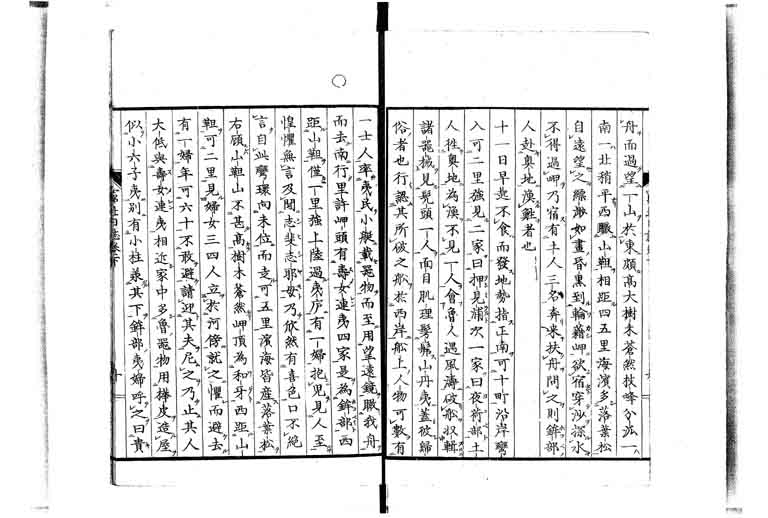 舟而過望一山於東頗高大樹木蒼然技峰分派一
南一北稍平西臙山靼相距四五里海濱多落葉松
自遠望之縹渺如畫昏黒到輪藉岬欲宿穿沙深水
不得過岬乃宿有土人三名奔來扶舟問之則鉾部
人赴奥地漢雞者也
十一日早起不食而發地勢指正南可十町沿岸彎
入可二里強見二家曰押見蒲次一家曰夜荷部土
人徃奥地為漢不見一人會魯人遇風濤破舩収輯
諸器械見髠頭一人面目肌理髣髴山丹夷蓋彼歸
俗者也行認其所破之舩於西岸舩上人物可數有
一士人率夷民小艇載器物而至用望遠鏡瞰我舟
而去南行里許岬頭有壽女連夷四家是為鉾部西
距山靼僅一里強上陸過夷庐有一婦抱児見人至
惶懼無言及聞志斐志耶女乃欣然有喜色口不絶
言自此彎環向未位而走可五里濱海皆産落葉松
右顧山靼山不甚高樹木蒼然岬頂為和牙西距山
靼可二里見婦女三四人立於河傍就之懼而避去
有一婦年可六十不敢避請迎其夫尼之乃止其人
大低與壽女連夷相近家中多魯器物用樺皮造屋
似小六子夷別有小柱羕其下鉾部夷婦呼之曰賁